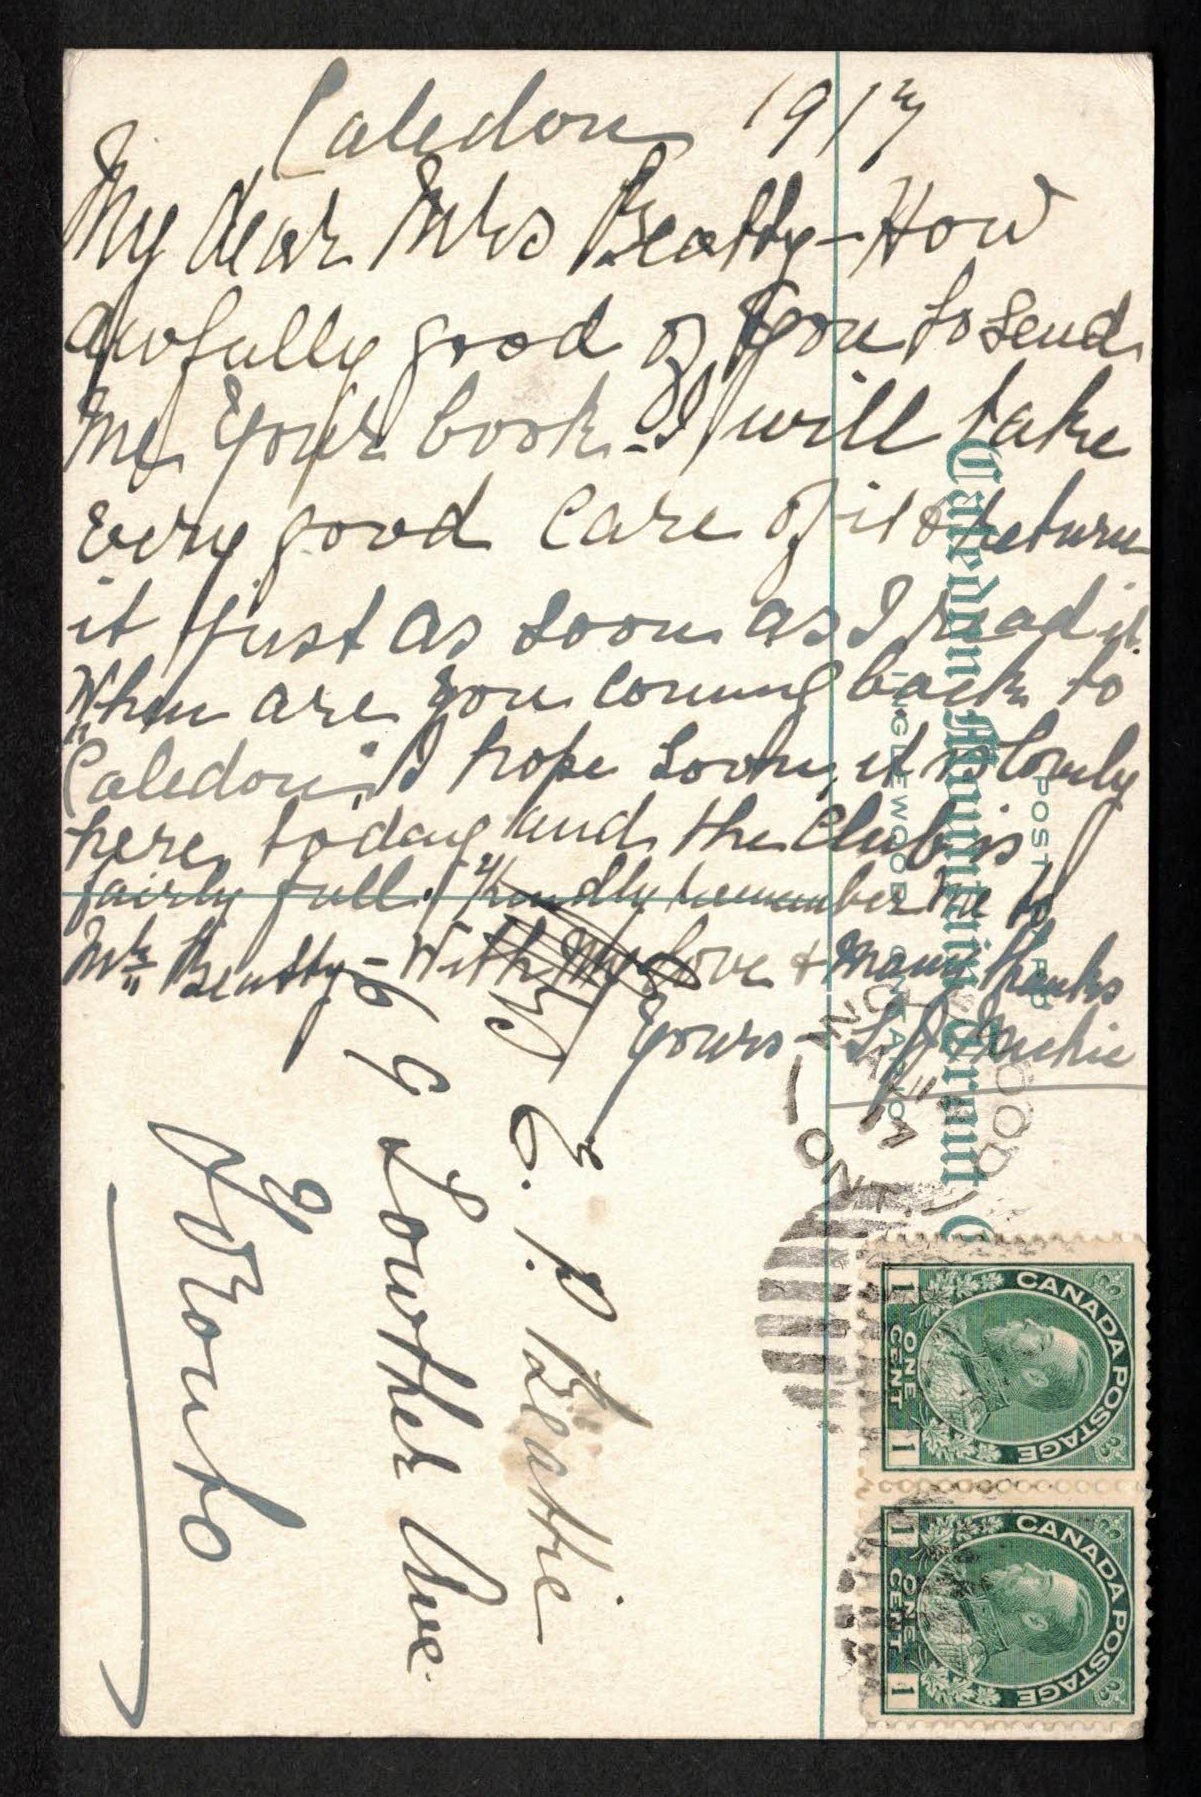 Caledon 1917
My dear Mrs Beatty - How
awfully good of you to send
me your book - I will take
every good care of it & return
it just as soon as I read it.
When are you coming back to
Caledon, I hope soon, it is lovely
here today and the Club is
fairly full. Kindly remember me to
Mr. Beatty - With my love & many thanks
Yours -
E. P. Beattie
69 Lowther Ave
Toronto
Caledon Mountain Trout C
INGLEWOOD, ONTARIO
POST CARD
OOD
ONT
CANADA POSTAGE
1 ONE CENT 1
CANADA POSTAGE
1 ONE CENT 1